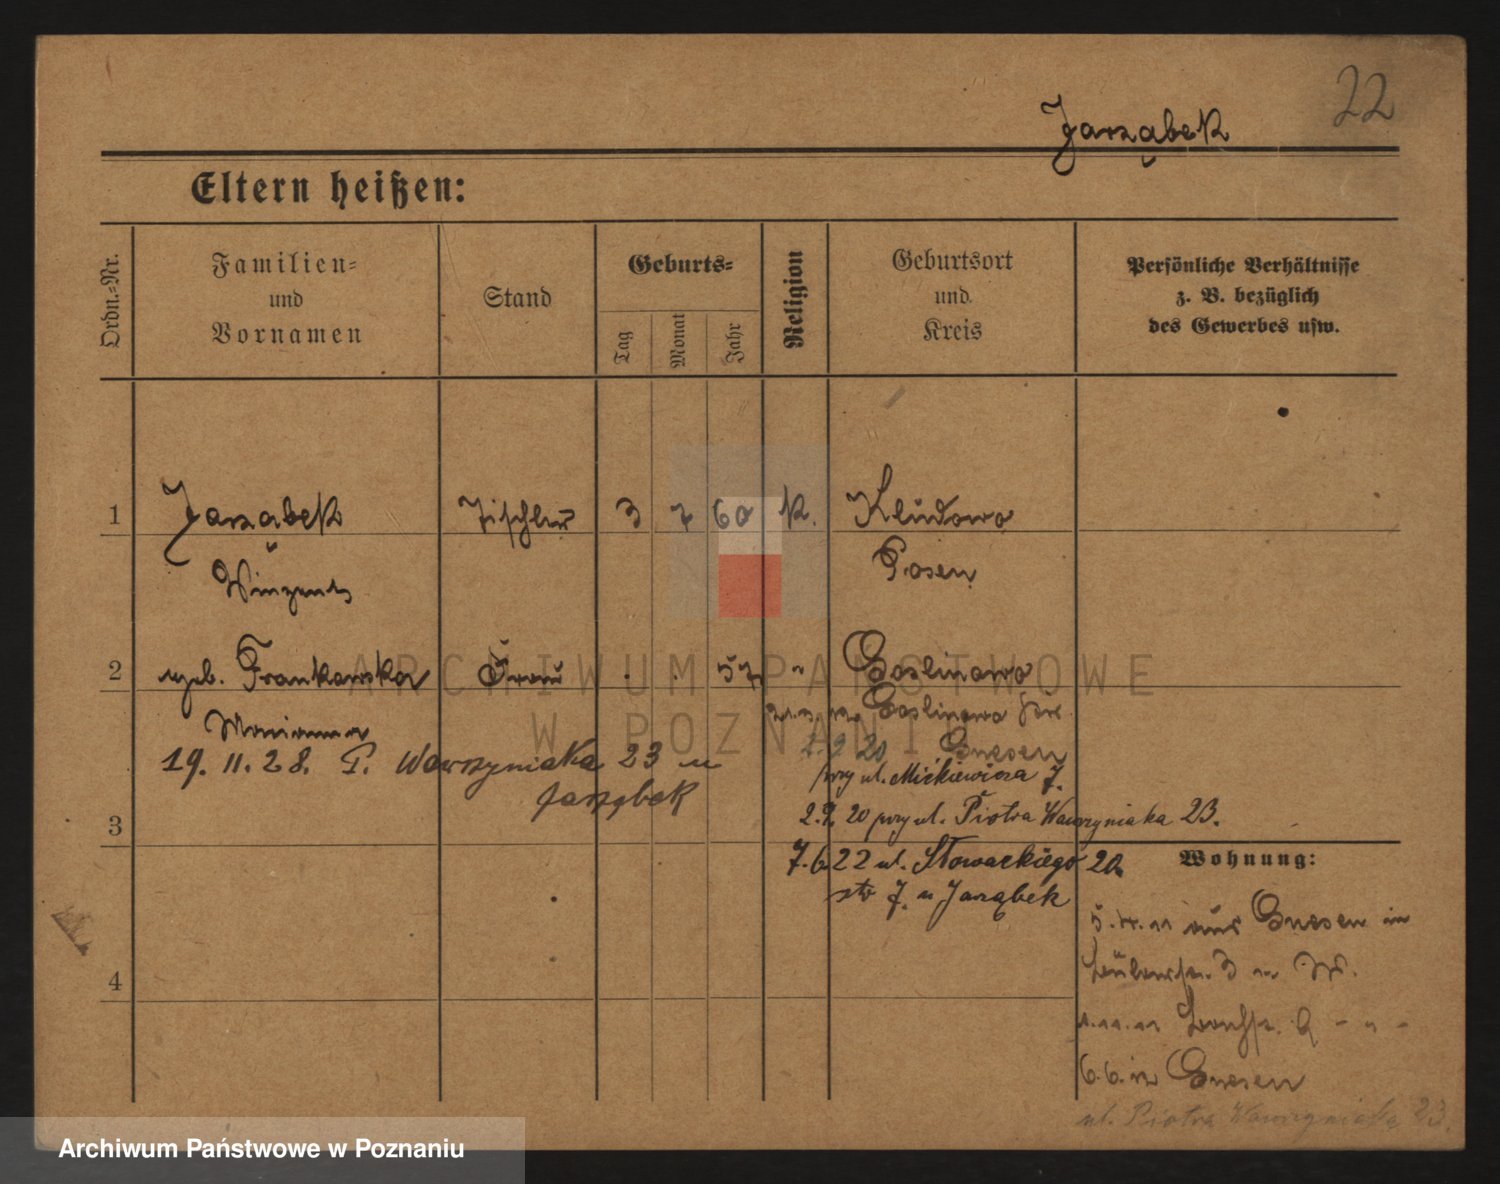 22
Jarząbek
Eltern heißen:
Ordn.-Nr.
Familien-
und
Vornamen
Stand
Geburts-
Tag
Monat
Jahr
Religion
Geburtsort
und
Kreis
Persönliche Verhältnisse
z. B. bezüglich
des Gewerbes usw.
1 Jarząbek Tischler 3 7 60 K. Kludowo
Winzent Posen
2 geb. Frankowska Frau 57 " Goslinowo
Marianna
Goslinowo
19. 11. 28. P. Wawrzyniaka 23 u
Jarząbek
2.9 20 Gnesen
przy ul. Mickiewicza 7.
2.9. 20 przy ul. Piotra Wawrzyniaka 23.
3
7.6.22 ul. Słowackiego 20
u Jarząbek
Wohnung:
aus Gnesen in
3
4
1.11.11 9 - " -
6.6.12 Gnesen
ul. Piotra Wawrzyniaka 23.
ARCHIWUM PAŃSTWOWE
W POZNANIU
Archiwum Państwowe w Poznaniu